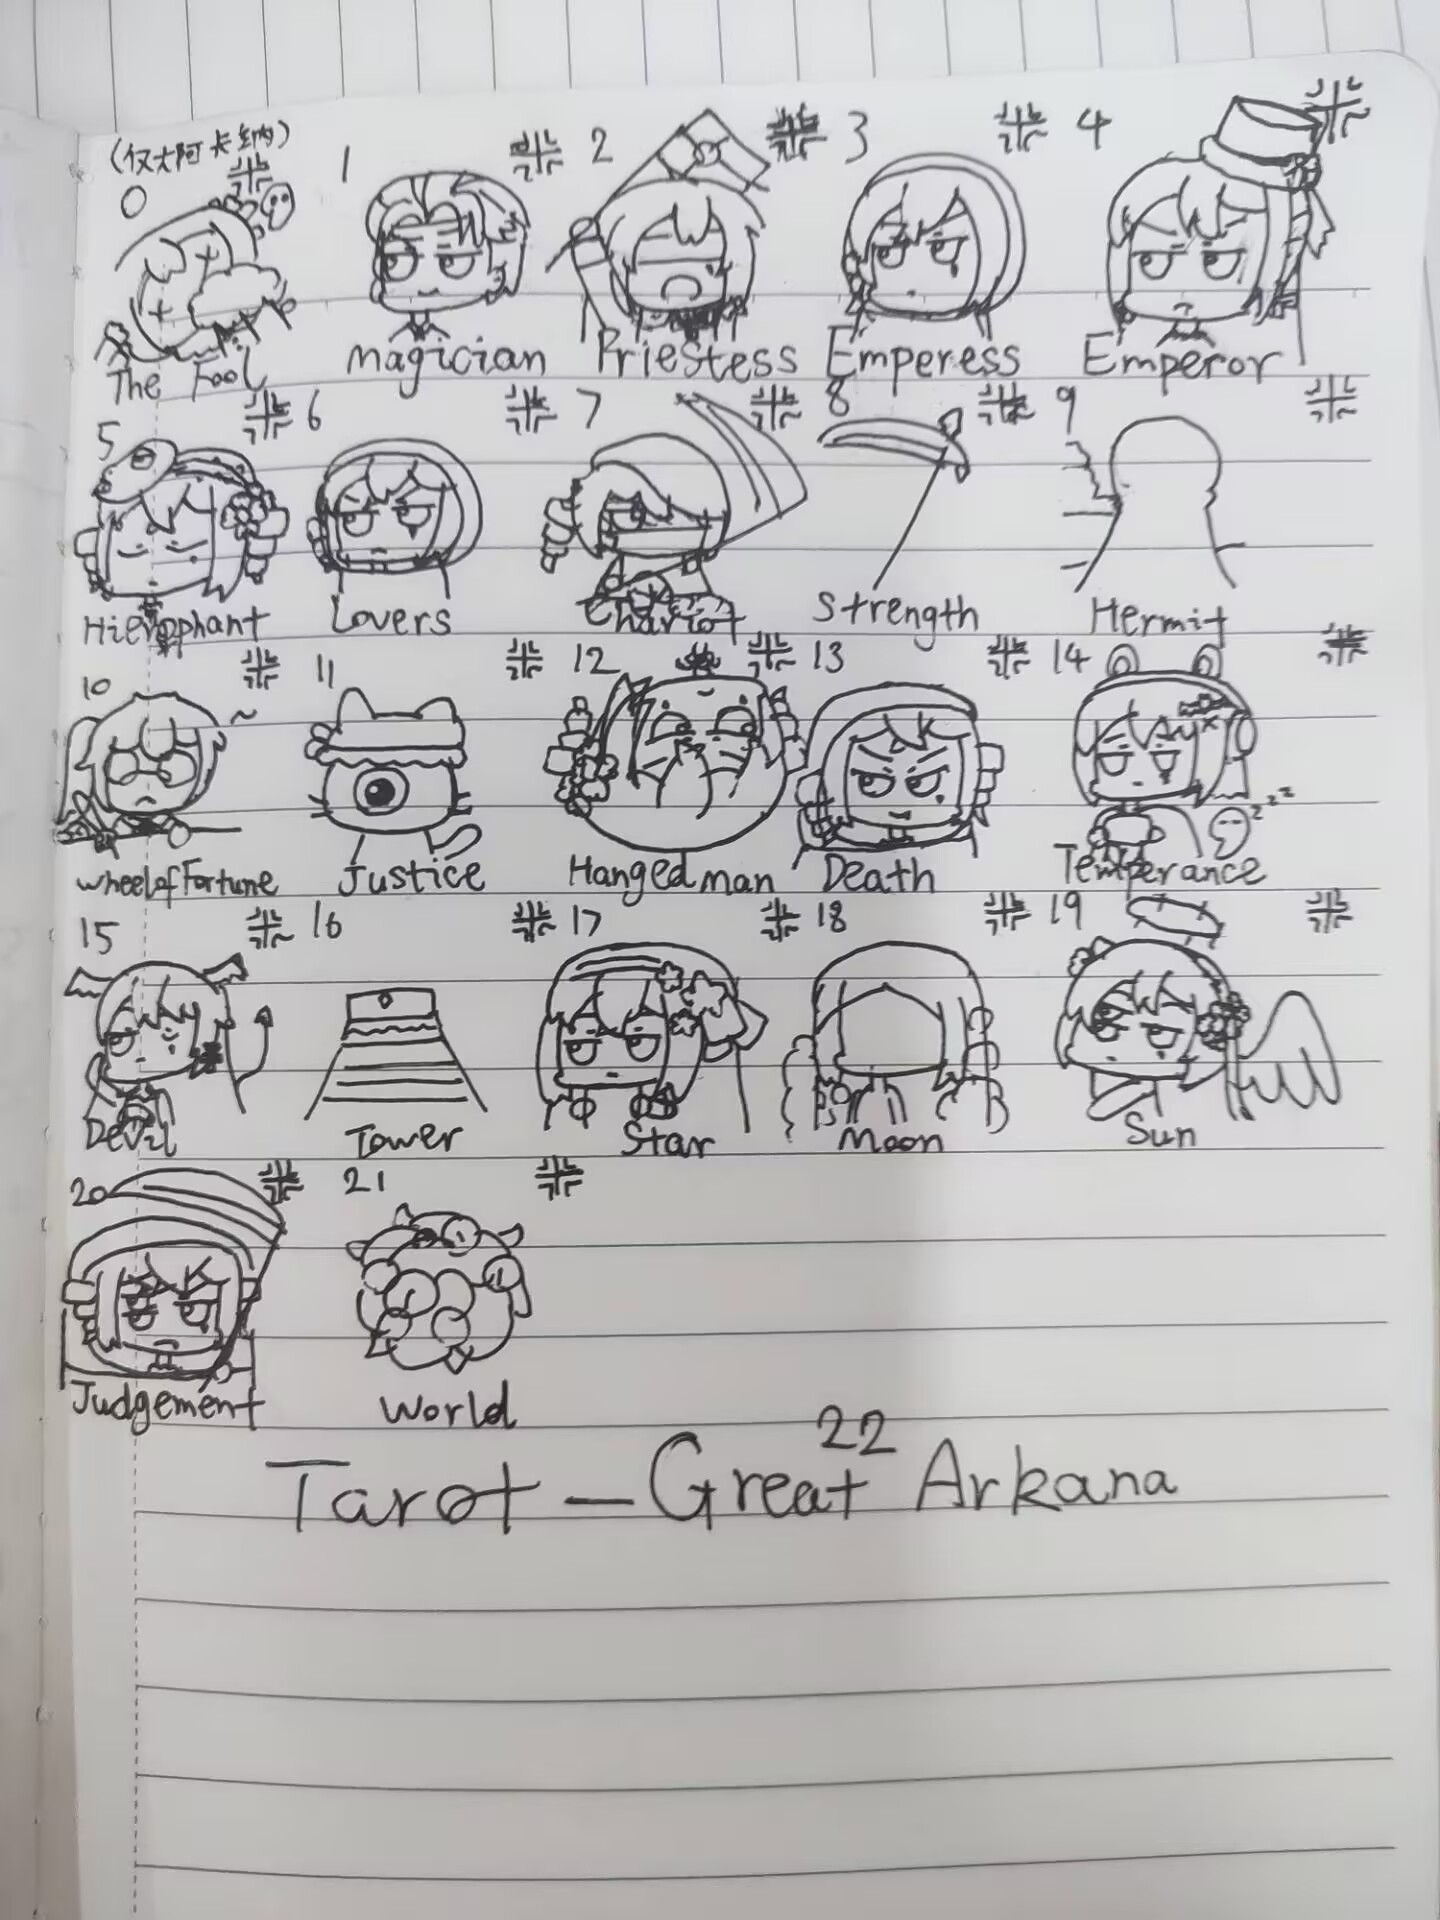 (仅大阿卡纳)
0 1 2 3 4
The Fool magician Priestess Emperess Emperor
5 6 7 8 9
Hieropphant Lovers Chariot Strength Hermit
10 11 12 13 14
zzz
wheel of Fortune Justice Hanged man Death Temperance
15 16 17 18 19
Devil Tower Star Moon Sun
20 21
Judgement World
22
Tarot — Great Arkana